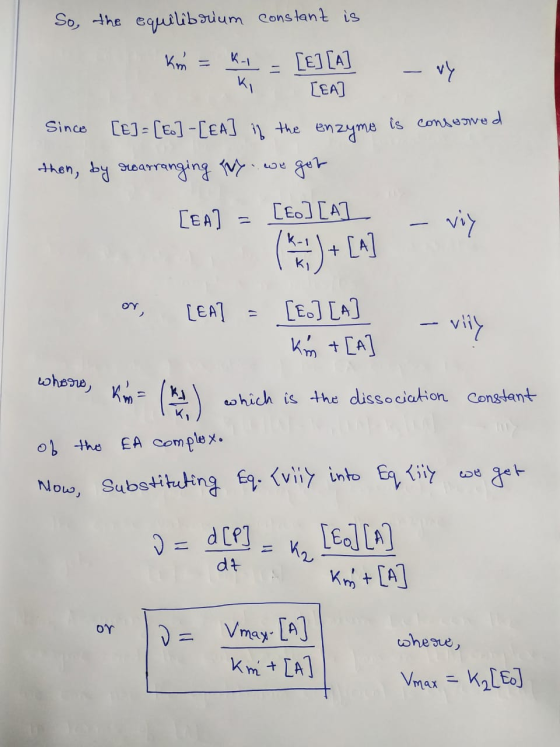 So, the equilibrium constant is
Km' = K-1/K1 = [E][A]/[EA] — v⟩
Since [E]=[E0]-[EA] if the enzyme is conserved
then, by rearranging ⟨v⟩. we get
[EA] = [E0][A]/((K-1/K1) + [A]) — vi⟩
or, [EA] = [E0][A]/(Km' + [A]) — vii⟩
where, Km' = (K-1/K1) which is the dissociation constant
of the EA complex.
Now, Substituting Eq. ⟨vii⟩ into Eq ⟨ii⟩ we get
ν = d[P]/dt = K2 [E0][A]/(Km' + [A])
or ν = Vmax.[A]/(Km' + [A]) where,
Vmax = K2[E0]